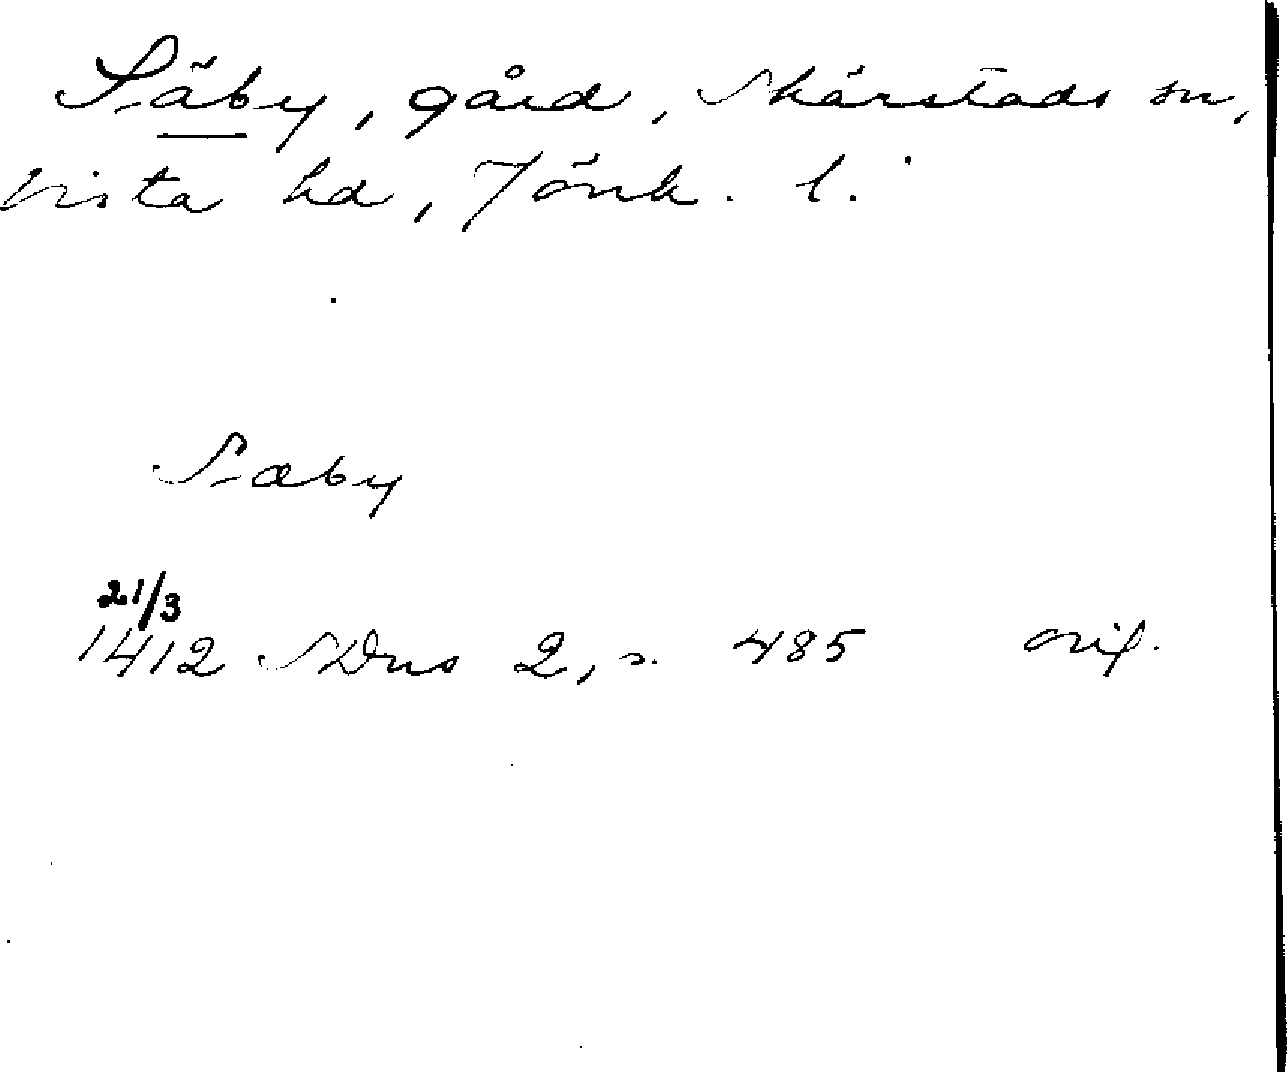 Säby, gård, Skärstads sn,
Vista hd, Jönk. l.
Sæby
21/3
1412 SDns 2, s. 485 orig.